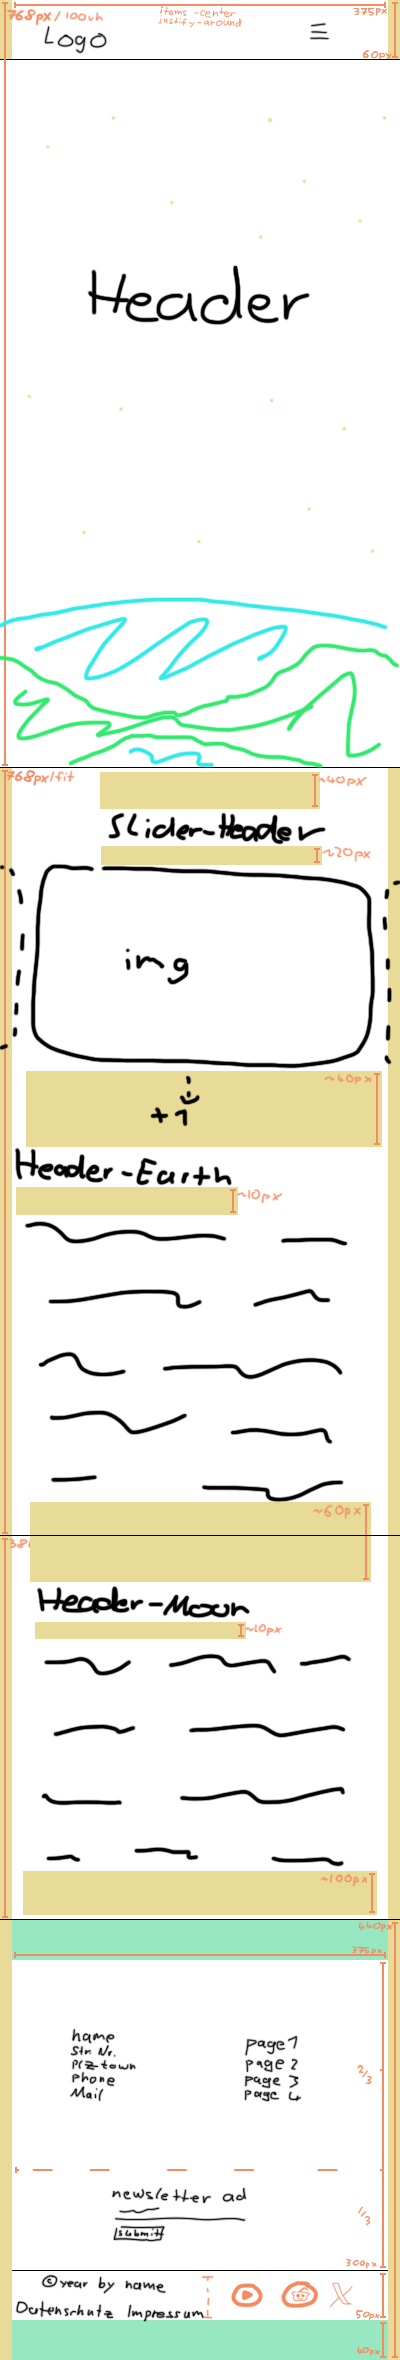 768px/100vh
items-center
justify-around
375px
Logo
60px
Header
768px/fit
~40px
Slider-Header
~20px
img
~40px
+1
Header-Earth
~10px
~60px
38
Header-Moon
~10px
~100px
440px
375px
name
Str. Nr.
Plz-town
Phone
Mail
page 1
page 2
page 3
page 4
2/3
newsletter ad
submit
1/3
300px
© year by name
Datenschutz Impressum
X
50px
40px